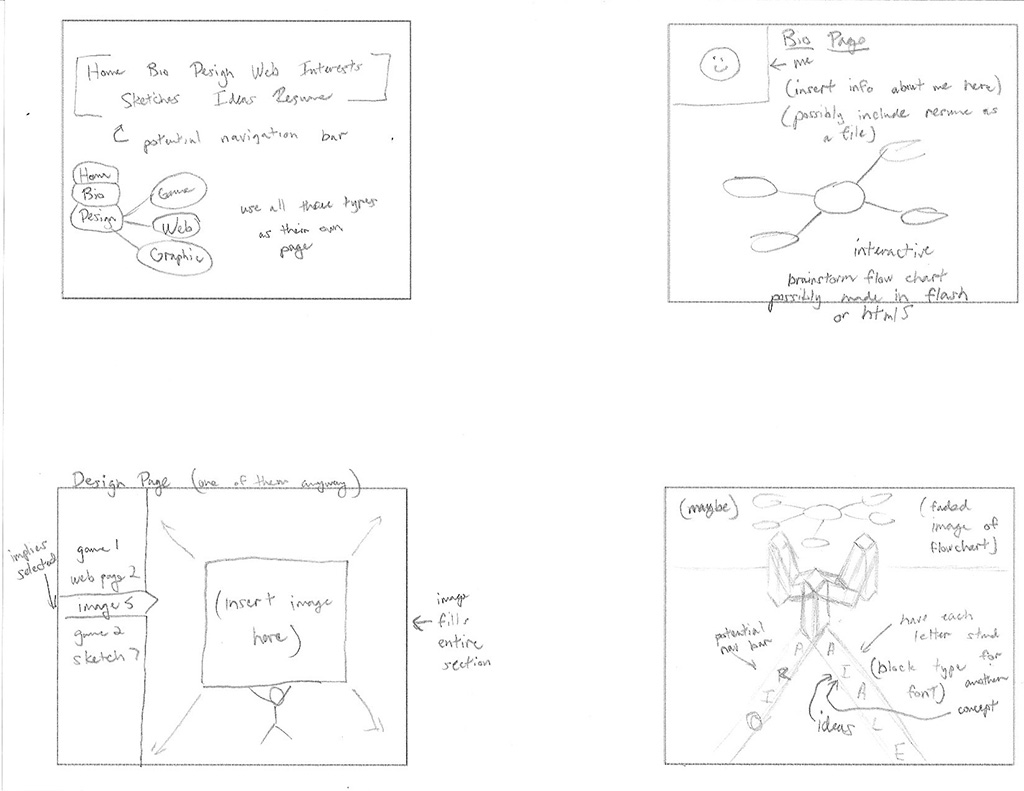 Home Bio Design Web Interests
Sketches Ideas Resume
potential navigation bar
Home
Bio
Design
Game
Web
Graphic
use all three types
as their own
page
Bio Page
me
(insert info about me here)
(possibly include resume as
a file)
interactive
brainstorm flow chart
possibly made in flash
or html5
Design Page (one of them anyway)
implies
selected
game 1
web page 2
image 5
game 2
sketch 7
(insert image
here)
image
fills
entire
section
(maybe)
(faded
image of
flowchart)
potential
nav bar
have each
letter stand
(block type for
another
font)
concept
ideas